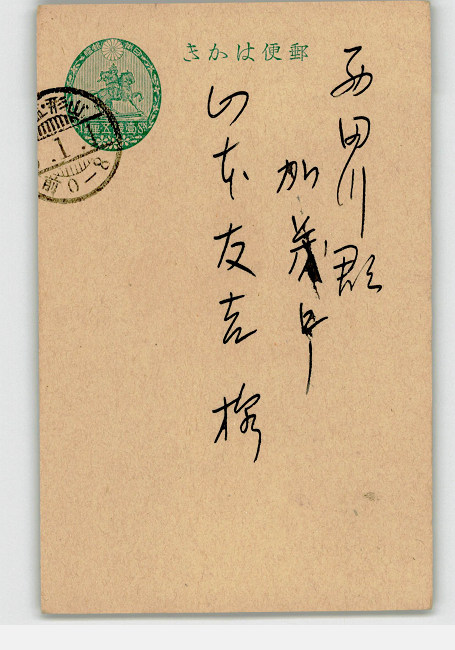 郵便はかき
西田川郡
加茂町
山本友吉様